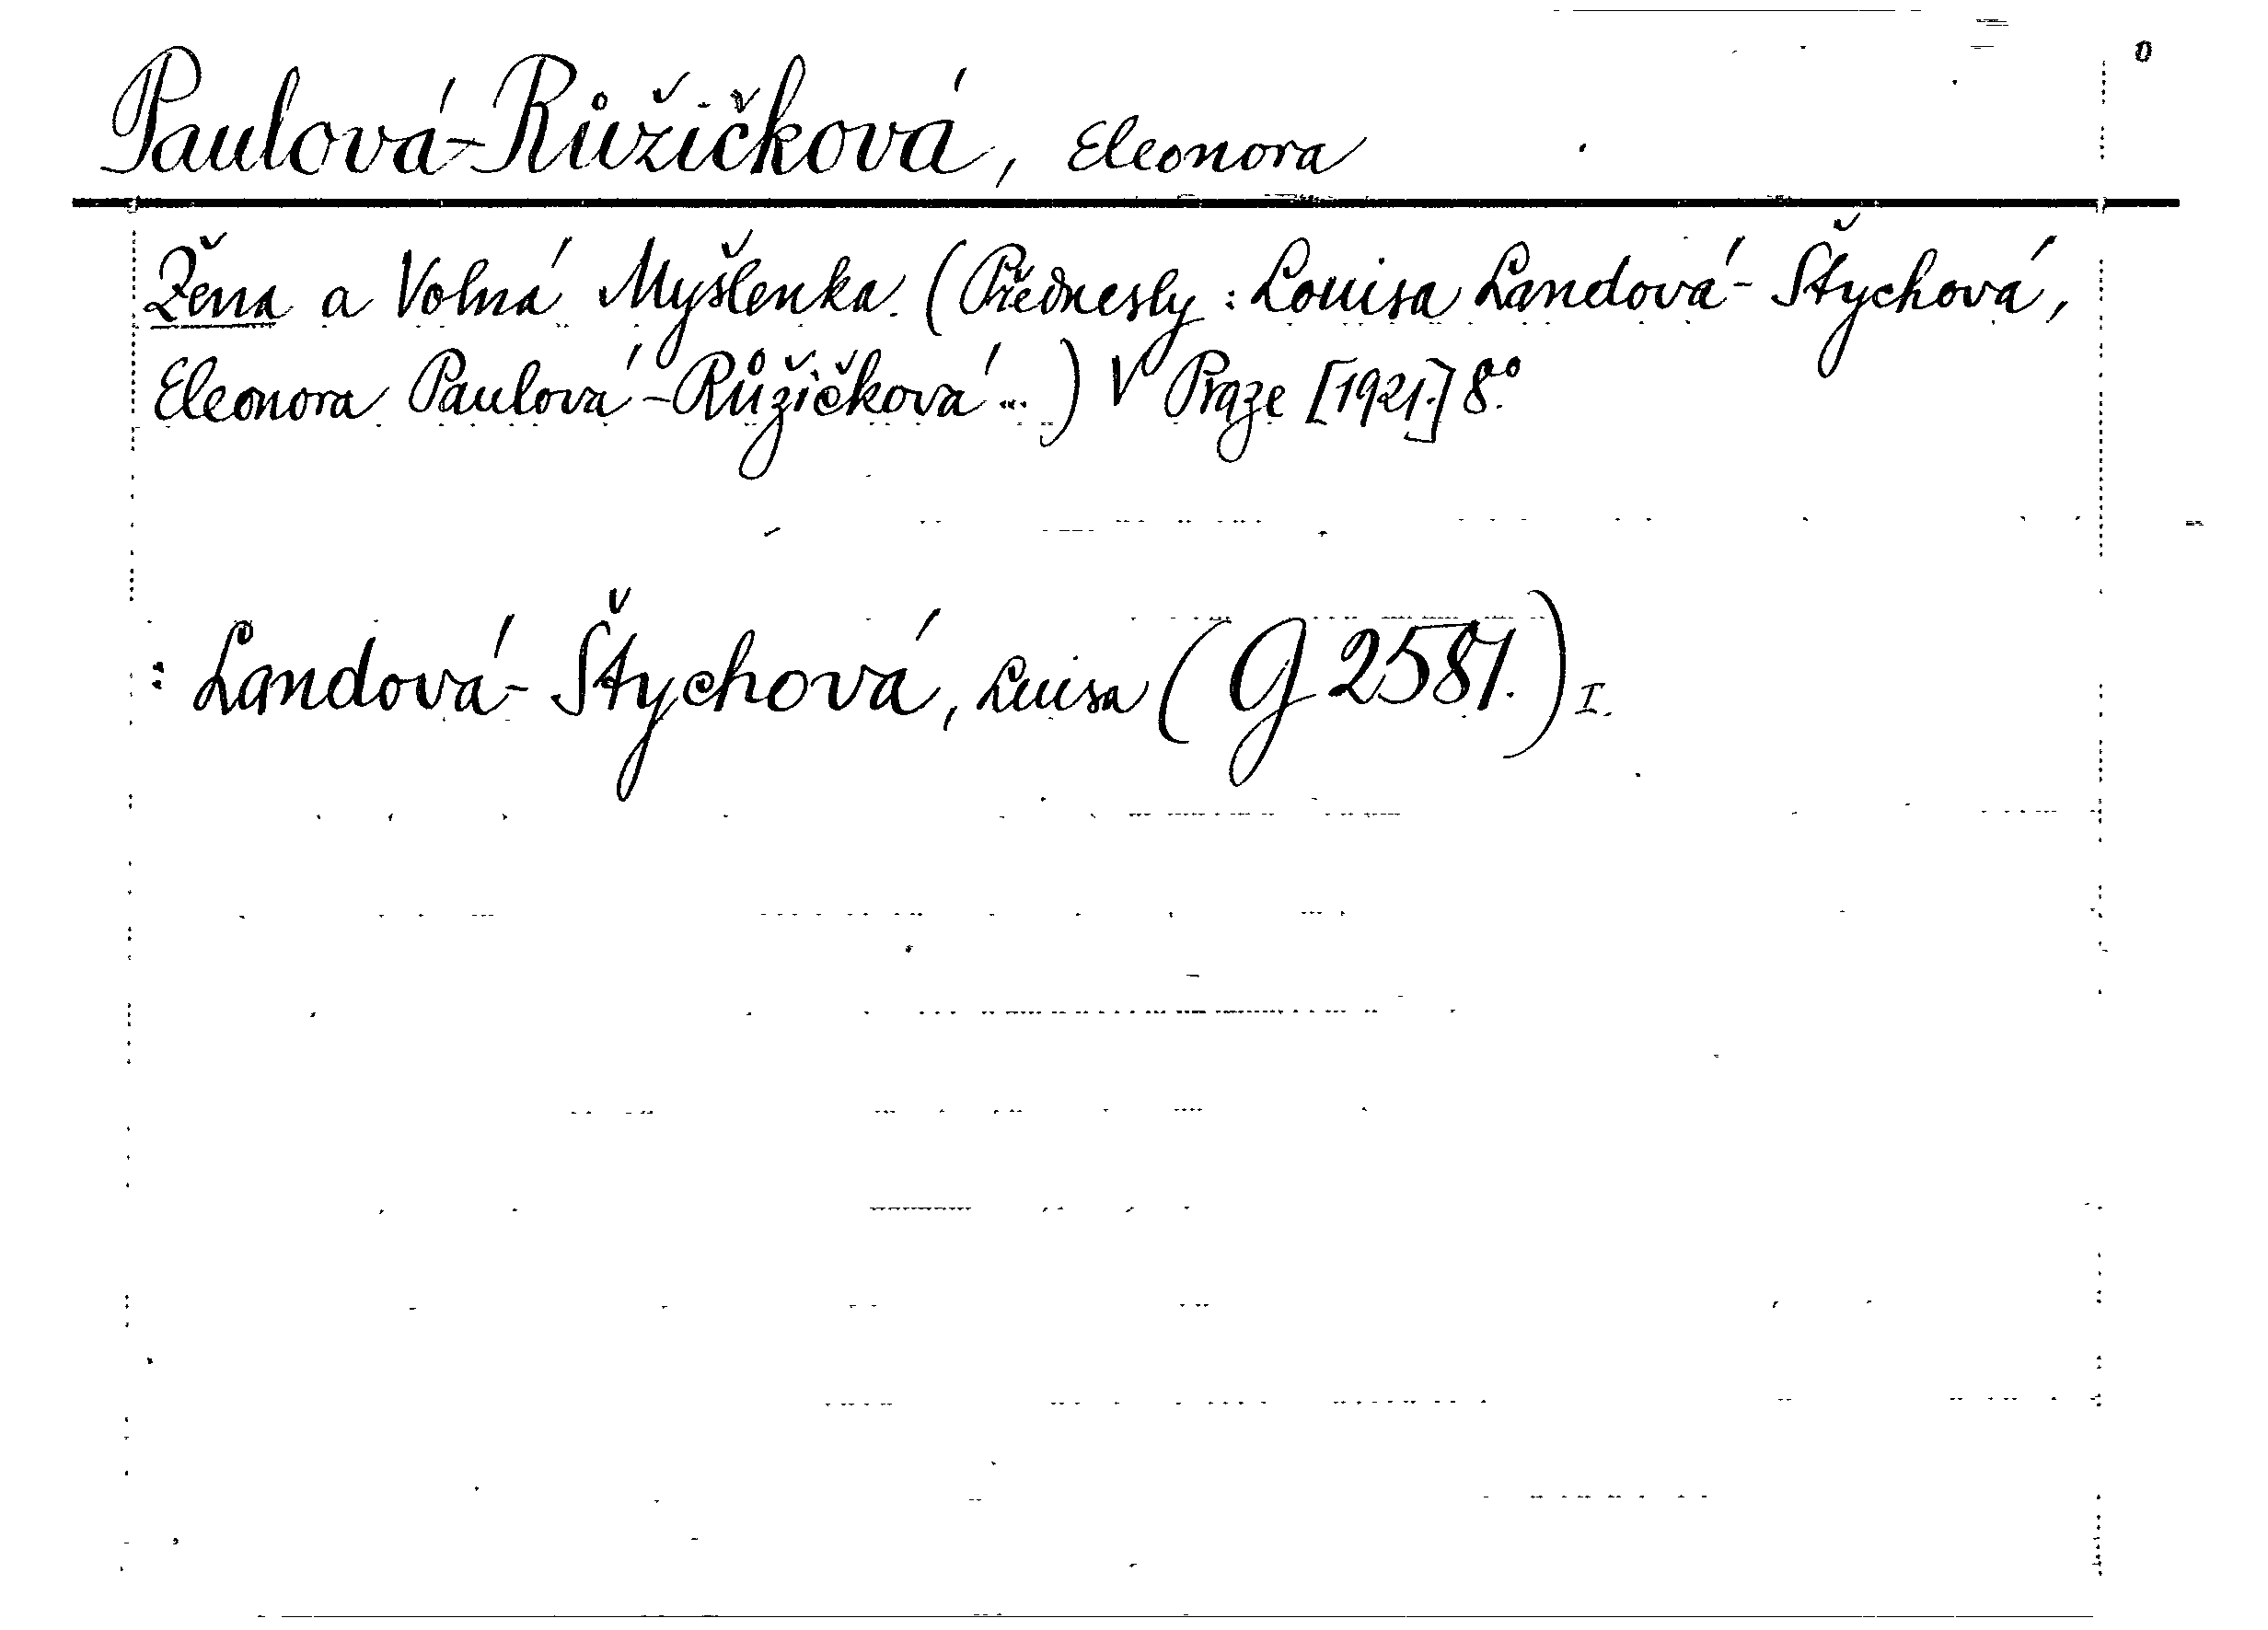 Paulová-Růžičková, Eleonora
Žena a Volná Myšlenka. (Přednesly: Louisa Landová-Štychová,
Eleonora Paulová-Růžičková...) V Praze [1921.] 8°.
: Landová-Štychová, Luisa (G 2581.) I.